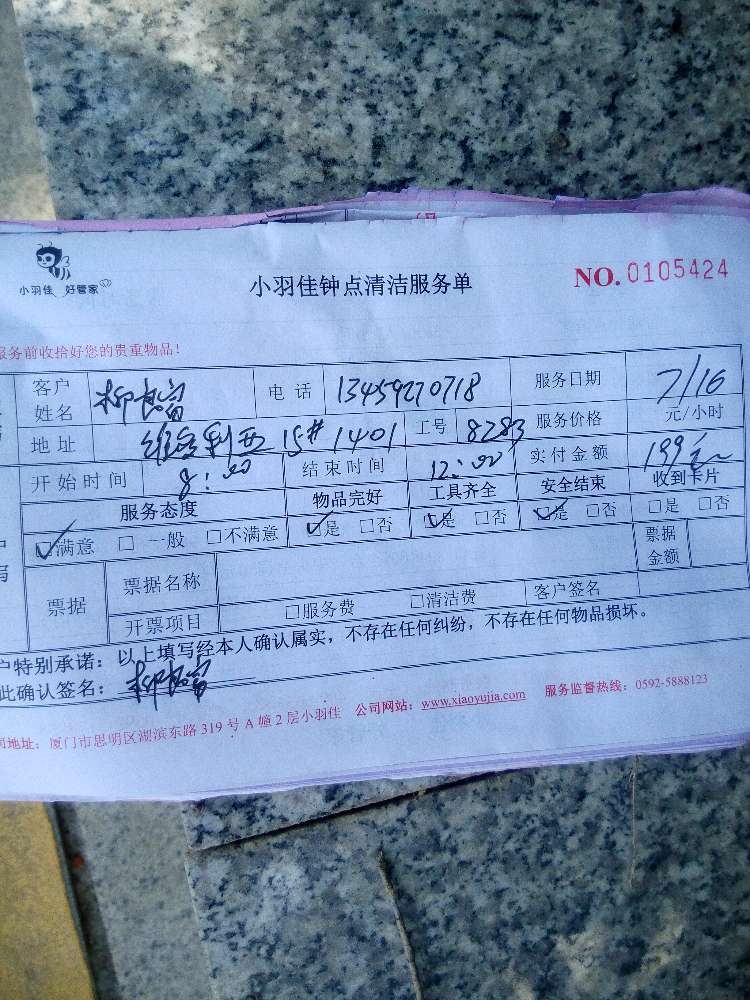 小羽佳 好管家
小羽佳钟点清洁服务单
NO. 0105424
服务前收拾好您的贵重物品!
客户姓名 柳良富 电话 13459270718 服务日期 7/16
地址 维多利亚 15# 1401 工号 8283 服务价格 元/小时
开始时间 8:00 结束时间 12:00 实付金额 199元
服务态度 物品完好 工具齐全 安全结束 收到卡片
☑满意 □ 一般 □不满意 ☑是 □否 ☑是 □否 ☑是 □否 □是 □否
票据 票据名称 票据金额
开票项目 □服务费 □清洁费 客户签名
户特别承诺:以上填写经本人确认属实,不存在任何纠纷,不存在任何物品损坏。
此确认签名: 柳良富
司地址:厦门市思明区湖滨东路 319 号 A 幢 2 层小羽佳 公司网站:www.xiaoyujia.com 服务监督热线:0592-5888123